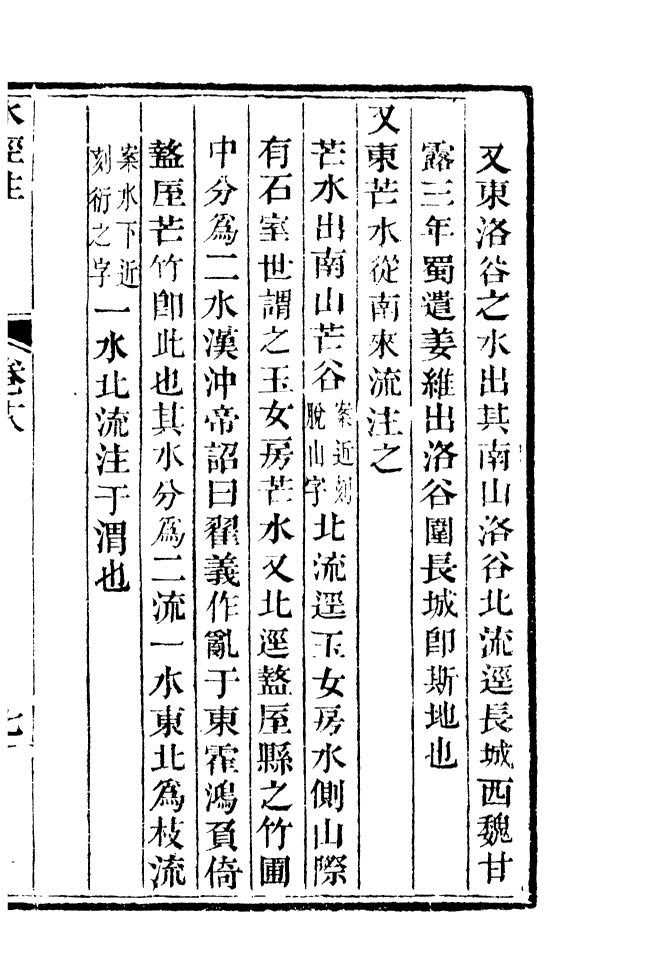 又東洛谷之水出其南山洛谷北流逕長城西魏甘
露三年蜀遣姜維出洛谷圍長城卽斯地也
又東芒水從南來流注之
芒水出南山芒谷案近刻脫山字北流逕玉女房水側山際
有石室世謂之玉女房芒水又北逕盩厔縣之竹圃
中分爲二水漢沖帝詔曰翟義作亂于東霍鴻負倚
盩厔芒竹卽此也其水分爲二流一水東北爲枝流
案水下近刻衍之字一水北流注于渭也
水經注
卷十八
七